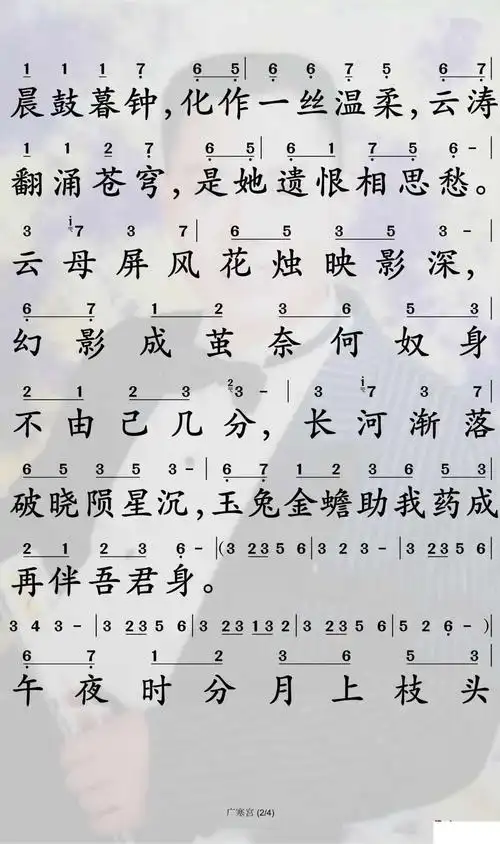 1 1 1 7 6 5 | 6 6 7 5 6 7 |
晨鼓暮钟,化作一丝温柔,云涛
1 1 2 7 6 5 | 6 1 7 5 7 6 - |
翻涌苍穹,是她遗恨相思愁。
3 i7 3 7 | 6 5 3 5 3 - |
云母屏风花烛映影深,
6 7 1 2 3 6 5 3 |
幻影成茧奈何奴身
2 1 2 3 23 - | 3 i7 3 7 |
不由己几分,长河渐落
6 5 3 5 3 - | 6 7 1 2 3 6 5 3 |
破晓陨星沉,玉兔金蟾助我药成
2 1 2 3 6 - | (3 235 6 | 3 2 3 - | 3 235 6 |
再伴吾君身。
3 4 3 - | 3 235 6 | 3 23 13 2 | 3 235 6 | 5 2 6 - ) |
6 7 1 2 3 6 5 3 |
午夜时分月上枝头
广寒宫 (2/4)